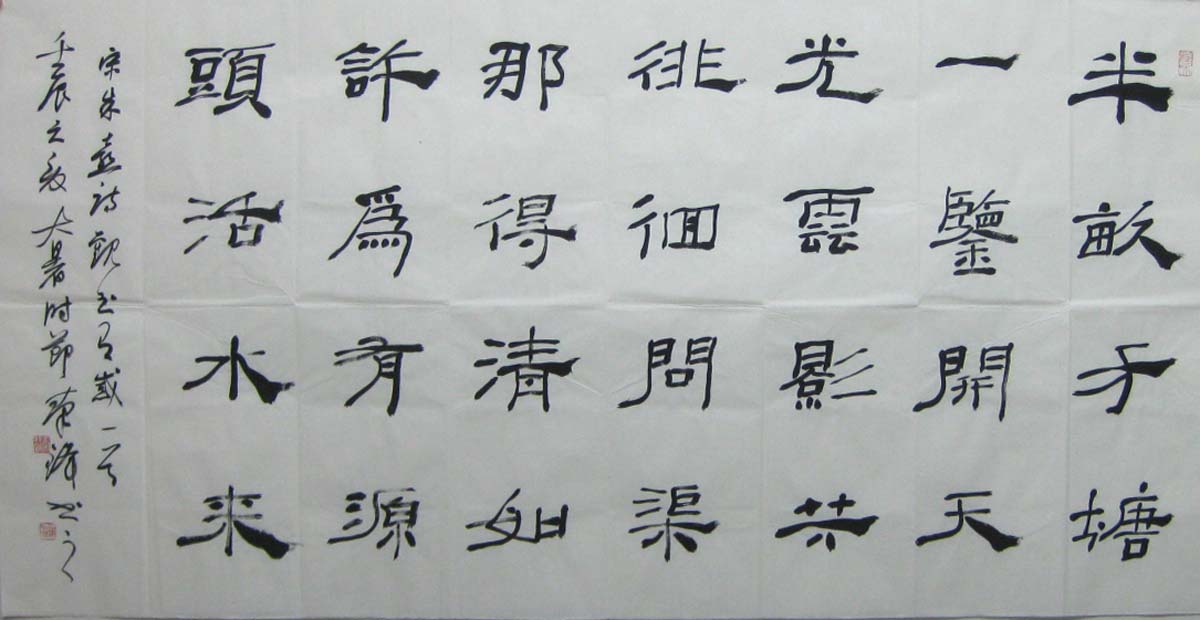 半畝方塘
一鑒開天
光雲影共
徘徊問渠
那得清如
許爲有源
頭活水来
宋朱熹诗观书有感一首
壬辰之夏大暑时节 锋书之